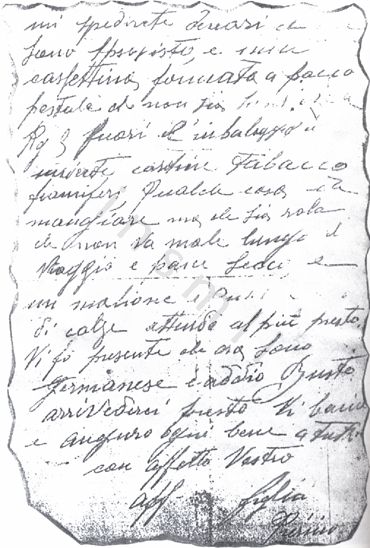 mi spedirete denari che
sono sprovisto, e una
cassettina formata a pacco
postale che non sia
Kg 3 fuori l'imbalaggio
inviate cartine Tabacco
fiamiferi Qualche cosa da
mangiare ma che sia roba
che non va male lungo il
Viaggio e pane secco e
un maglione
di calze attendo al più presto.
Vi fò presente che ora sono
Germanese e addio Busto
arrivederci presto Vi bacio
e auguro ogni bene a tutti
con affetto Vostro
aff figlio